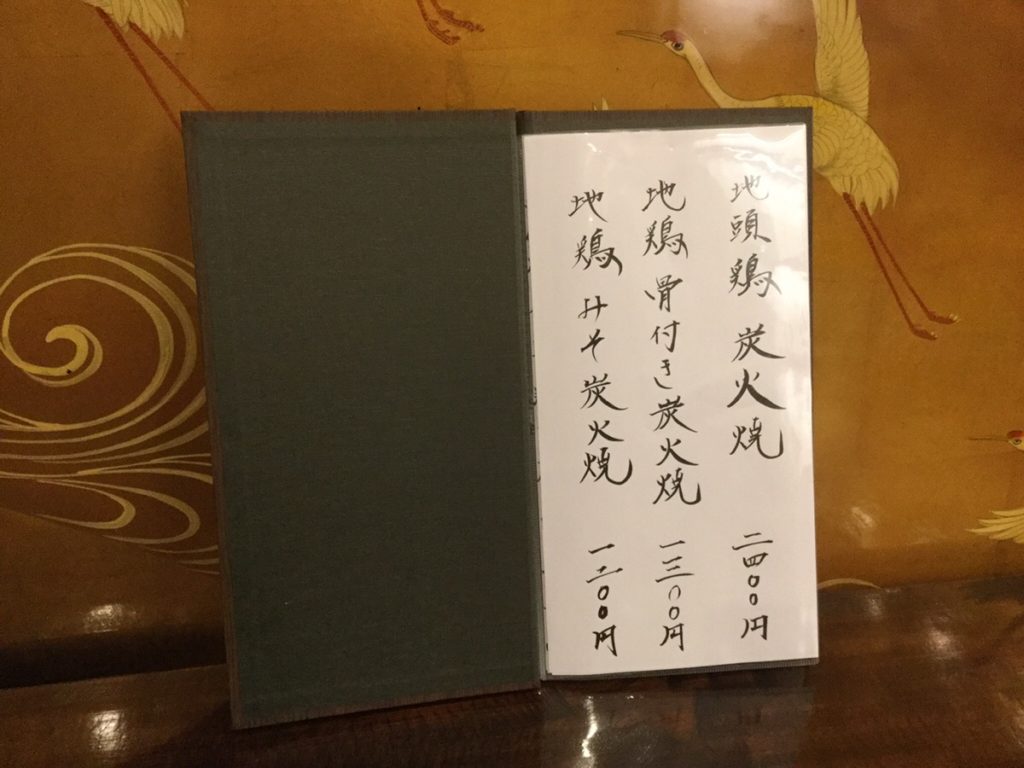 地頭鶏 炭火焼 二四〇〇円
地鶏 骨付き炭火焼 一三〇〇円
地鶏 みそ炭火焼 一二〇〇円